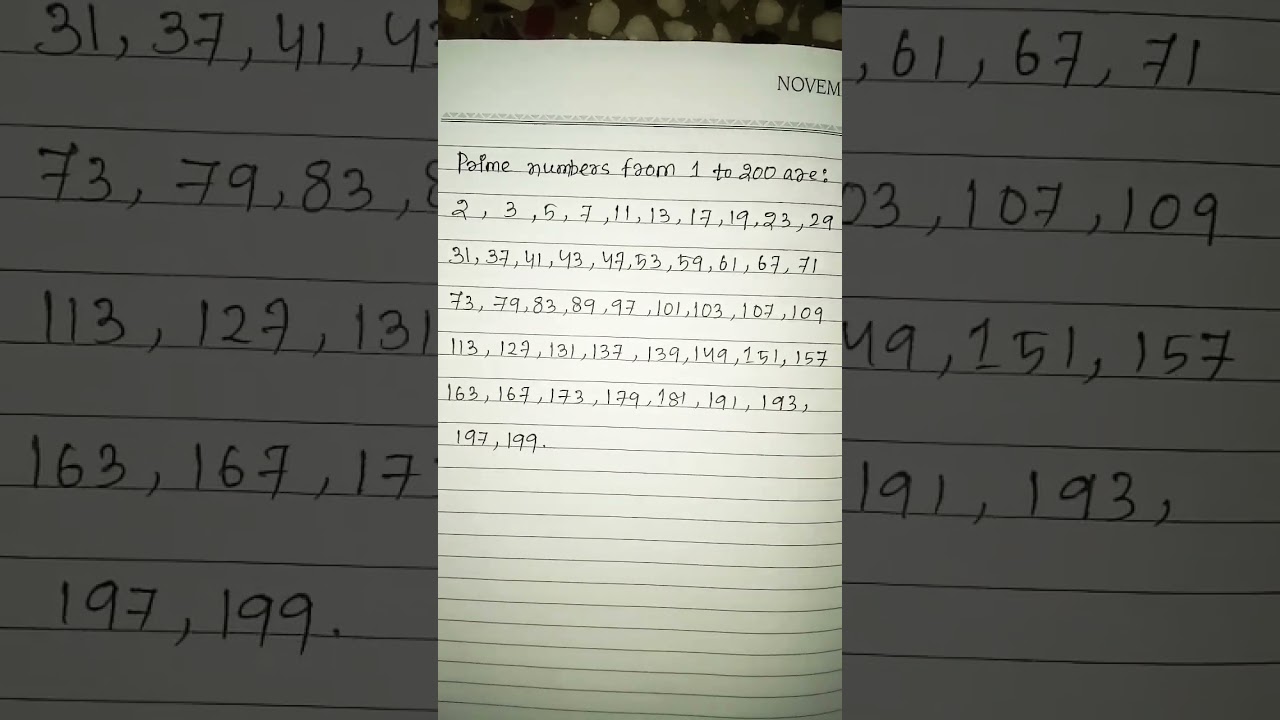 NOVEM
Prime numbers from 1 to 200 are:
2, 3, 5, 7, 11, 13, 17, 19, 23, 29
31, 37, 41, 43, 47, 53, 59, 61, 67, 71
73, 79, 83, 89, 97, 101, 103, 107, 109
113, 127, 131, 137, 139, 149, 151, 157
163, 167, 173, 179, 181, 191, 193,
197, 199.